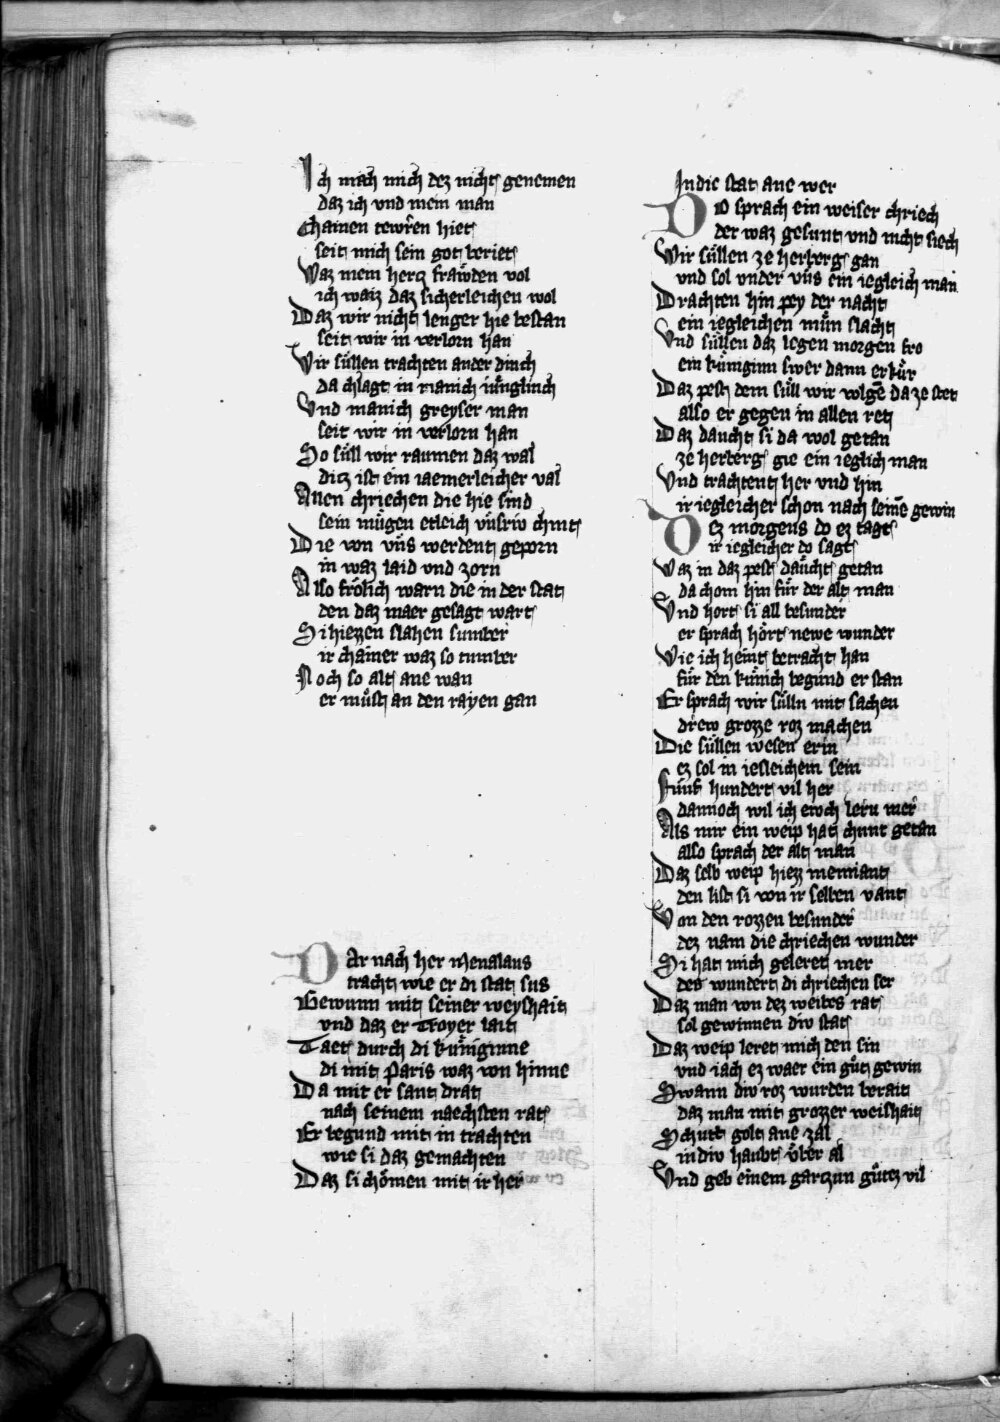 Ich mach mich dez nicht genemen
daz ich vnd mein man
Chainen tewrͤn hiet
seit mich sein got beriet
Waz mein hercz frawͤden vol
ich waiz daz sicherleichen wol
Daz wir nicht lenger hie bestan
seit wir in verlorn han
Wir suͤllen trachten ander dinch
da chlagt in manich iuͤnglinch
Vnd manich greyser man
seit wir in verlorn han
So suͤll wir raumen daz wal
dicz ist ein iaemerleicher val
Allen chriechen die hie sind
sein muͤgen etleich vnsriv chint
Die von vns werdent geporn
in waz laid vnd zorn
Also froͤlich warn die in der stat
den daz maer gesagt wart
Si hiezzen slahen sumber
ir chainer waz so tumber
Noch so alt ane wan
er muͤst an den rayen gan
Dar nach her Menalaus
tracht wie er di stat sus
Gewunn mit seiner weyshait
vnd daz er Troyer lait
Taet durch di kuͤniginne
di mit Paris waz von hinne
Da mit er sant drat
nach seinem naechsten rat
Er begund mit in trachten
wie si daz gemachten
Daz si choͤmen mit ir her
In die stat ane wer
Do sprach ein weiser chriech
der waz gesunt vnd nicht siech
Wir suͤllen ze herberg gan
vnd sol vnder vns ein iegleich man
Trachten hin pey der nacht
ein iegleichen muͤn slacht
Vnd suͤllen daz legen morgen fro
ein kuͤniginn swer dann erkuͤr
Daz pest dem suͤll wir volgē da ze stet
also er gegen in allen ret
Daz daucht si da wol getan
ze herberg gie ein ieglich man
Vnd trachtent her vnd hin
ir iegleicher schon nach seinē gewin
Dez morgens do ez tagt
ir iegleicher do sagt
Waz in daz pest daͤucht getan
da chom hin fuͤr der alt man
Vnd hort si all besunder
er sprach hoͤrt newe wunder
Wie ich heint betracht han
fuͤr den kuͤnich begund er stan
Er sprach wir suͤlln mit sachen
drew grozze roz machen
Die suͤllen wesen erin
ez sol in iesleichem sein
Fuͤnf hundert vil her
dannoch wil ich ewch lern mer
Als mir ein weip hat chunt getan
also sprach der alt man
Daz selb weip hiezz menniant
den list si von ir selben vant
Von den rozzen besunder
dez nam die chriechen wunder
Si hat mich geleret mer
des wundert di chriechen ser
Daz man von dez weibes rat
sol gewinnen div stat
Daz weip leret mich den sin
vnd iach ez waer ein guͤt gewin
Swann div roz wurden berait
daz man mit grozzer weishait
Schutt golt ane zal
in div haubt vͤber al
Vnd geb einem garczun guͤtez vil